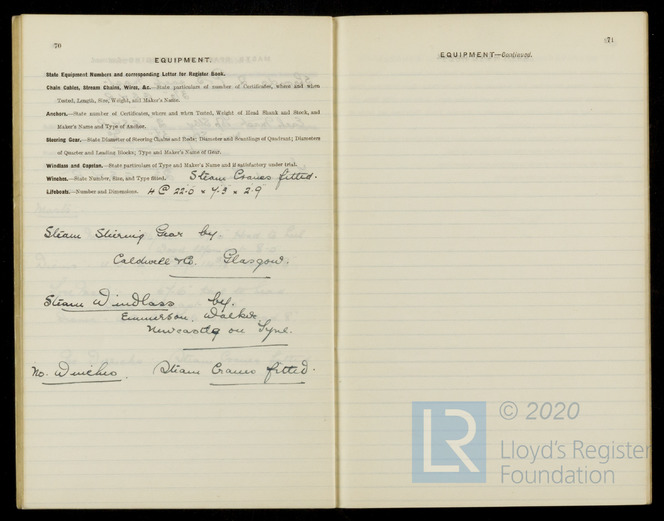 70
EQUIPMENT.
State Equipment Numbers and corresponding Letter for Register Book.
Chain Cables, Stream Chains, Wires, &c.—State particulars of number of Certificates, where and when
Tested, Length, Size, Weight, and Maker's Name.
Anchors.—State number of Certificates, where and when Tested, Weight of Head Shank and Stock, and
Maker's Name and Type of Anchor.
Steering Gear.—State Diameter of Steering Chains and Rods; Diameter and Scantlings of Quadrant; Diameters
of Quarter and Leading Blocks; Type and Maker's Name of Gear.
Windlass and Capstan.—State particulars of Type and Maker's Name and if satisfactory under trial.
Winches.—State Number, Size, and Type fitted. Steam Cranes fitted.
Lifeboats.—Number and Dimensions. 4 @ 22.0 × 7.3 × 2.9
Steam Stiering Gear by.
Caldwell & Co. Glasgow.
Steam Windlass by.
Emmerson, Walker
Newcastle on Tyne.
No. Winches. Steam Cranes fitted.
71
EQUIPMENT—Continued.
LR © 2020
Lloyd's Register
Foundation